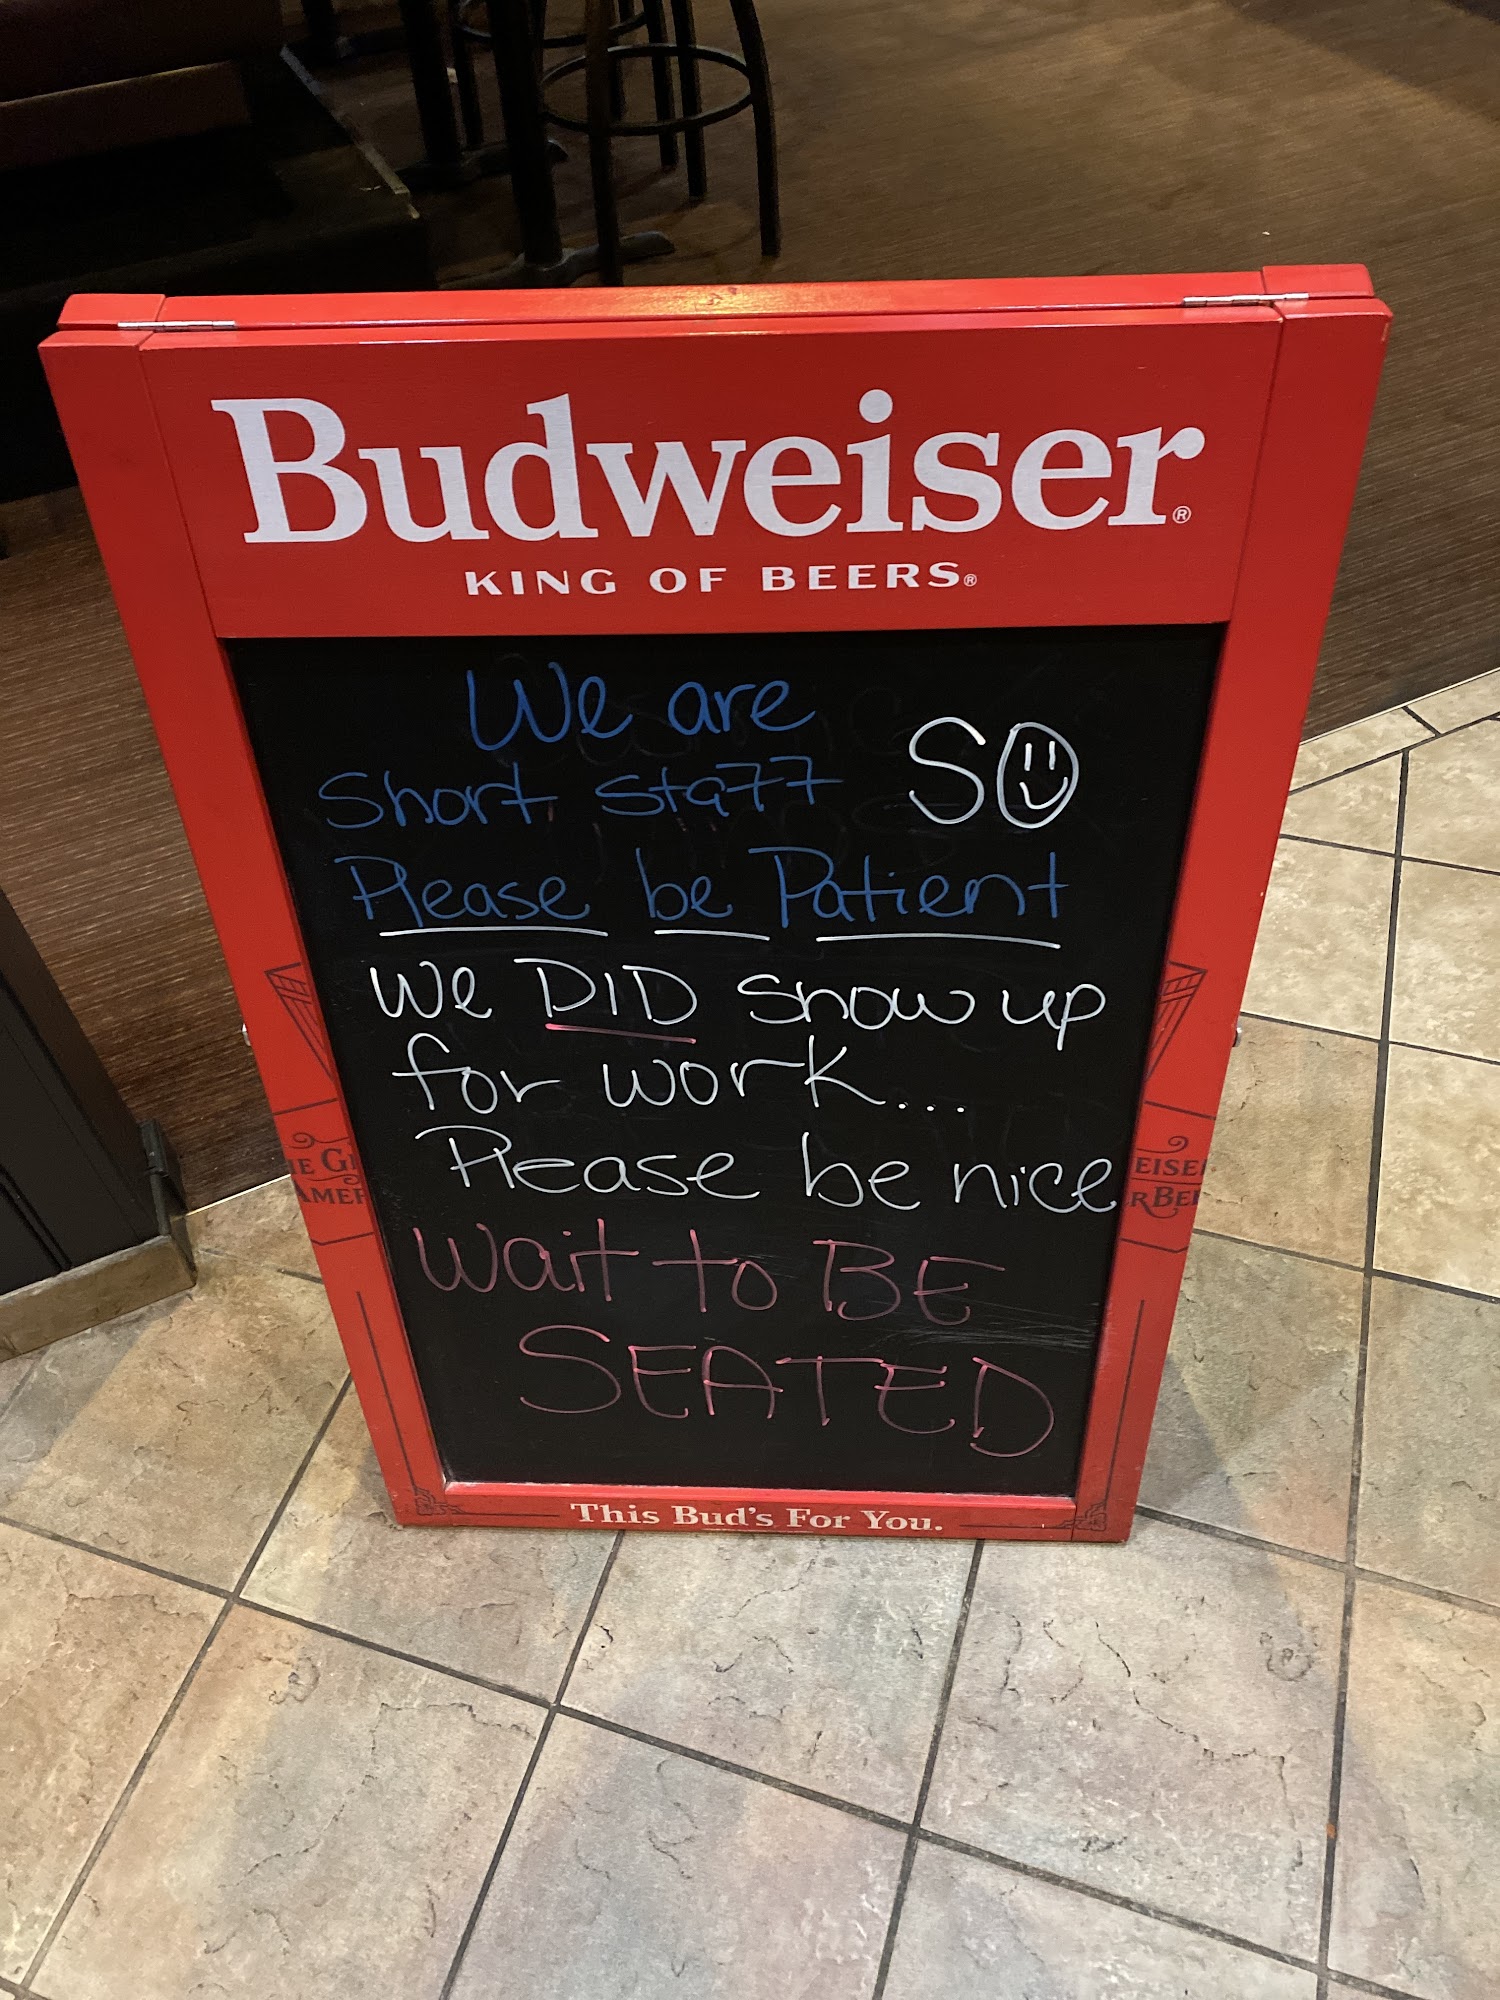 Budweiser®
KING OF BEERS®
We are
Short staff SO
Please be Patient
We DID show up
for work...
Please be nice
Wait to BE
SEATED
This Bud's For You.